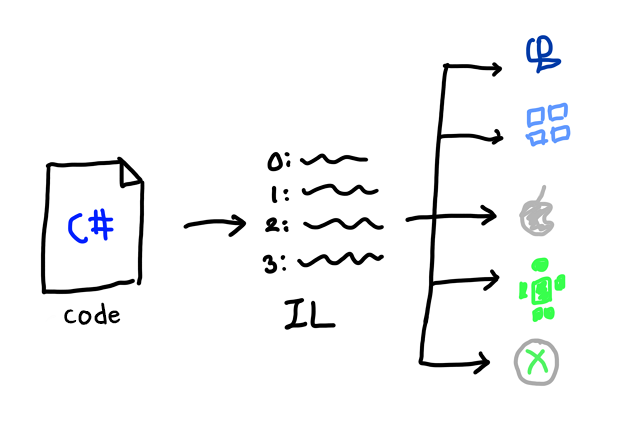 C#
code
0:
1:
2:
3:
IL